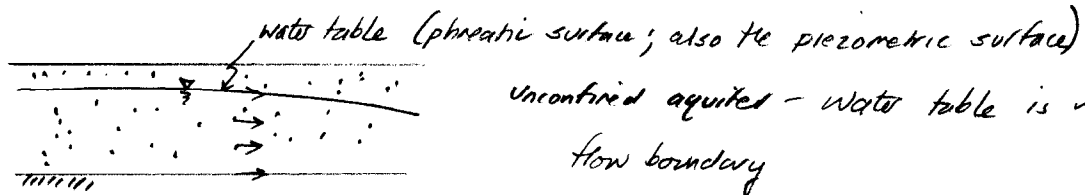 water table (phreatic surface; also the piezometric surface)
unconfined aquifer - water table is
flow boundary